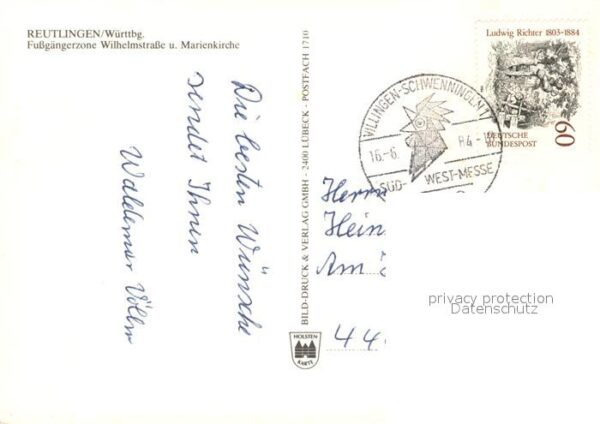 REUTLINGEN/Württbg.
Fußgängerzone Wilhelmstraße u. Marienkirche
Die besten Wünsche
sendet Ihnen
Waldemar
BILD-DRUCK & VERLAG GMBH - 2400 LÜBECK - POSTFACH 1710
HOLSTEN
KARTE
VILLINGEN-SCHWENNINGEN
16.-6. 84-
SÜD- WEST-MESSE
Ludwig Richter 1803-1884
DEUTSCHE
BUNDESPOST
60
Herrn
Hein
Am
44
privacy protection
Datenschutz